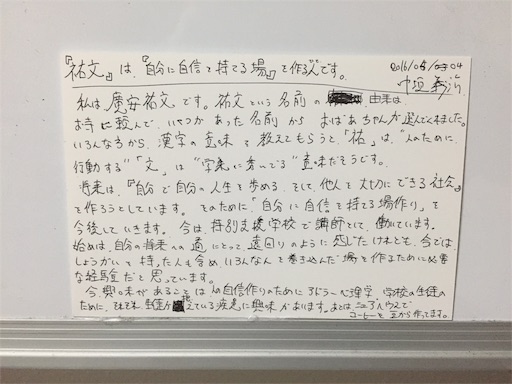 『祐文』は、『自分に自信を持てる場』を作る人です。
2016/03/04
私は、廣安祐文です。祐文という名前の 由来は
お寺に頼んで、いくつかあった名前から おばあちゃんが選んでくれました。
いろんな方から、漢字の意味を教えてもらうと、「祐」は、“人のために
行動する”「文」は“学業に秀いでる”意味だそうです。
将来は、『自分で自分の人生を歩める、そして、他人を大切にできる社会』
を作ろうとしています。そのために「自分に自信を持てる場作り」を
今後していきます。今は、特別支援学校で講師として、働いています。
始めは、自分の将来への道にとって遠回りのように感じたけれども、今では
しょうがいを持った人も含め、いろんな人を巻き込んだ場を作るために必要
な経験だと思っています。
今、興味があることは人の自信作りのためにアドラー心理学、学校の生徒の
ために、それぞれ生徒が抱えている疾患に興味があります。あとは
コーヒーを豆から作ってます。